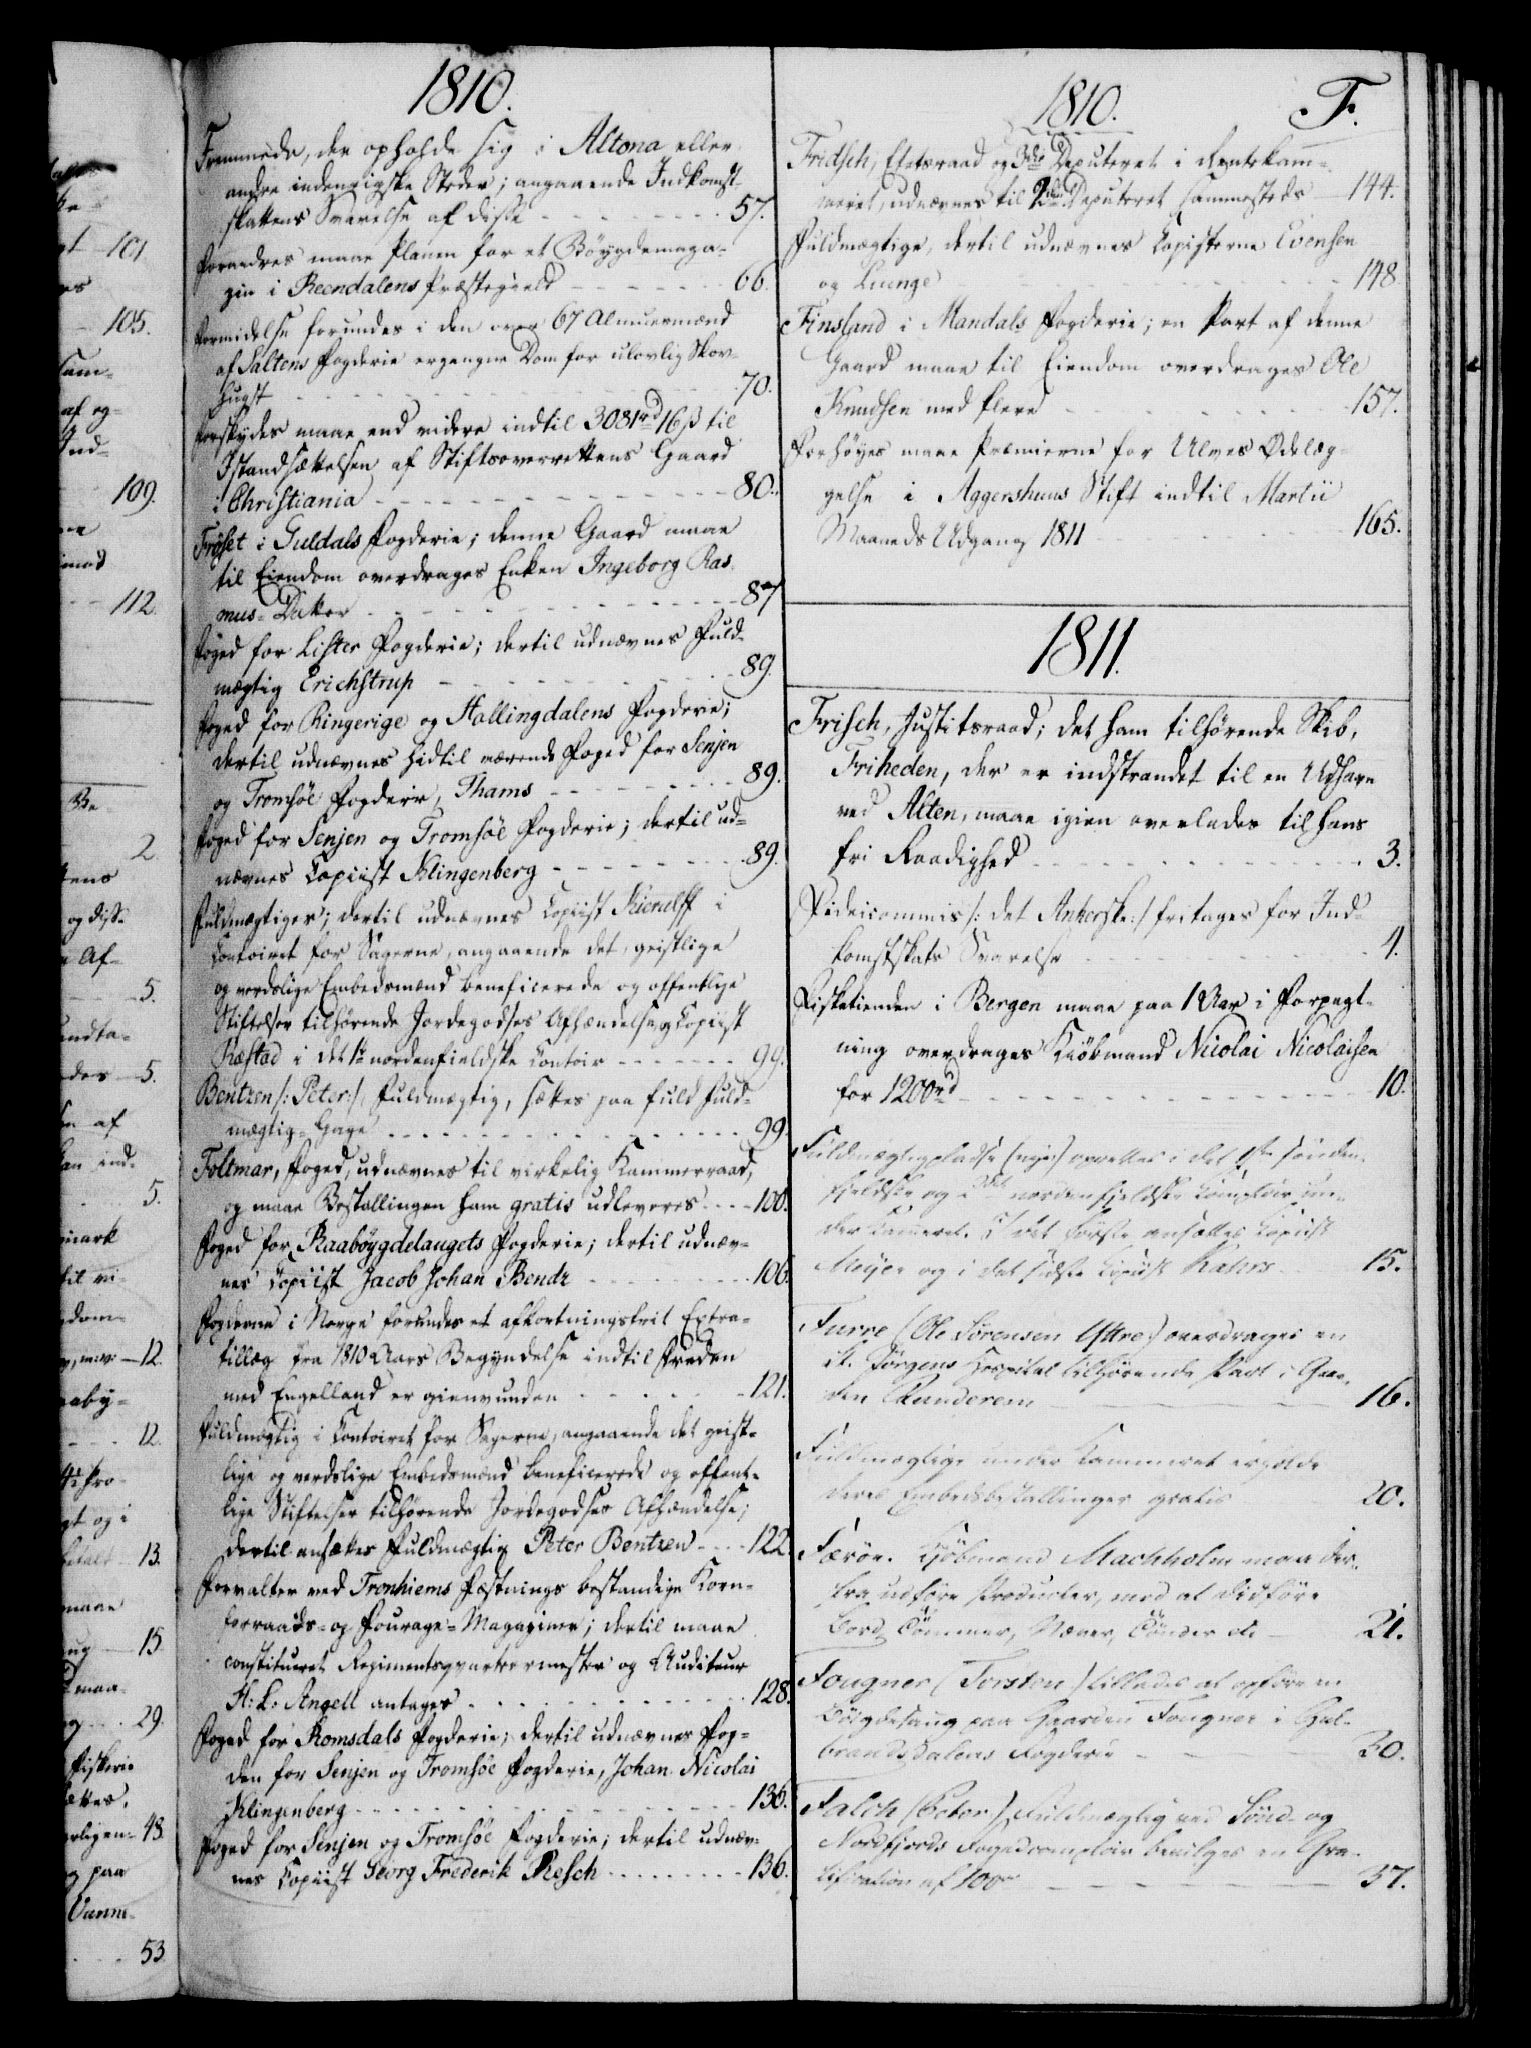 1810.
Fremmede, der opholde sig i Altona eller
andre indenrigske Steder; angaaende Indkomst-
skattens Svarelse af disse - - - 57.
Forandres maae Planen for et Bøygdemaga-
zin i Reendalens Præstegield - - - 66.
Formidelse forundes i den over 67 Almuesmænd
af Saltens Fogderie ergangne Dom for ulovlig Skov-
hugst - - - 70.
Forskydes maae end videre indtil 3081rd 16ß til
Istandsættelsen af Stiftsoverrettens Gaard
i Christiania - - - 80.
Frøset i Guldals Fogderie; denne Gaard maae
til Eiendom overdrages Enken Ingeborg Ras-
mus-Datter - - - 87
Foged for Lister Fogderie; dertil udnævnes Fuld-
mægtig Erichstrup - - - 89.
Foged for Ringerige og Hallingdalens Fogderie;
dertil udnævnes hidtil værende Foged for Senjen
og Tromsøe Fogderie, Thams - - - 89.
Foged for Senjen og Tromsøe Fogderie; dertil ud-
nævnes Copiist Klingenberg - - - 89.
Fuldmægtiger; dertil udnævnes Copiist Kierulff i
Contoiret for Sagerne, angaaende det, geistlige
og verdslige Embedsmænd beneficerede og offentlige
Stiftelser tilhørende Jordegodses Afhændelse, og Copiist
Ræstad i det 1te nordenfieldske Contoir - - - 99.
Bentzen /: Peter :/, Fuldmægtig, sættes paa fuld Fuld-
mægtig-Gage - - - 99.
Foltmar, Foged, udnævnes til virkelig Kammerraad,
og maae Bestallingen ham gratis udleveres - - - 100.
Foged for Raabøygdelaugets Fogderie; dertil udnæv-
nes Copiist Jacob Johan Bendz - - - 106.
Fogderne i Norge forundes et afkortningsfrit Extra-
tillæg fra 1810 Aars Begyndelse indtil Freden
med Engelland er gienvunden - - - 121.
Fuldmægtig i Contoiret for Sagerne, angaaende det geist-
lige og verdslige Embedsmænd beneficerede og offent-
lige Stiftelser tilhørende Jordegodses Afhændelse;
dertil ansættes Fuldmægtig Peter Bentzen - - - 122.
Forvalter ved Tronhiems Fæstnings bestandige Korn-
forraads- og Fourage-Magaziner; dertil maae
constitueret Regimentsqvarteermester og Auditeur
H: L: Angell antages - - - 128.
Foged for Romsdals Fogderie; dertil udnævnes Fog-
den for Senjen og Tromsøe Fogderie, Johan Nicolai
Klingenberg - - - 136.
Foged for Senjen og Tromsøe Fogderie; dertil udnæv-
nes Copiist Georg Frederik Resch - - - 136.
1810. F.
Fridsch, Etatsraad og 3die Deputeret i Rentekam-
meret, udnævnes til 2den Deputeret sammesteds - 144.
Fuldmægtige, dertil udnævnes Copisterne Evensen
og Lunge - - - 148
Finsland i Mandals Fogderie; en Part af denne
Gaard maae til Eiendom overdrages Ole
Knudsen med flere - - - 157.
Forhøyes maae Præmierne for Ulves Ødelæg-
gelse i Aggershuus Stift indtil Martii
Maaneds Udgang 1811 - - - 165.
1811.
Frisch, Justitsraad; det ham tilhørende Skib,
Friheden, der er indstrandet til en Udhavn
ved Alten, maae igien overlades til hans
fri Raadighed - - - 3.
Fideicommis /: det Ankerske :/ fritages for Ind-
komstskats Svarelse - - - 4.
Fisketienden i Bergen maae paa 1 Aar i Forpagt-
ning overdrages Kiøbmand Nicolai Nicolaisen
for 1200rd - - - 10.
Fuldmægtigpladse (nye) oprettes i det 1ste sønden-
fjeldske og 2det nordenfjeldske Comptoir un-
der Kammeret. I det første ansættes Copiist
Meyer og i det sidste Copiist Rahrs - 15.
Furre (Ole Sørensen Yttre) overdrages en
St. Jørgens Hospital tilhørende Part i Gaar-
den Runderem - - - 16.
Fuldmægtige under Kammeret erholde
deres Embedsbestallinger gratis 20.
Færøe. Kjøbmand Machholm maa der-
fra udføre Producter, mod at didføre
Bord, Tømmer, Næver, Tønder etc - 21.
Fougner (Torsten) tillades at opføre en
Bøigdesaug paa Gaarden Fougner i Gul-
brandsdalens Fogderie - - - 30.
Falch (Peter) Fuldmægtig ved Sønd- og
Nordfjords Fogedcomptoir bevilges en Gra-
tification af 100rd - - - 37.
101
105.
109.
112.
2
5.
5.
5.
12.
12.
13.
15
29.
48
53